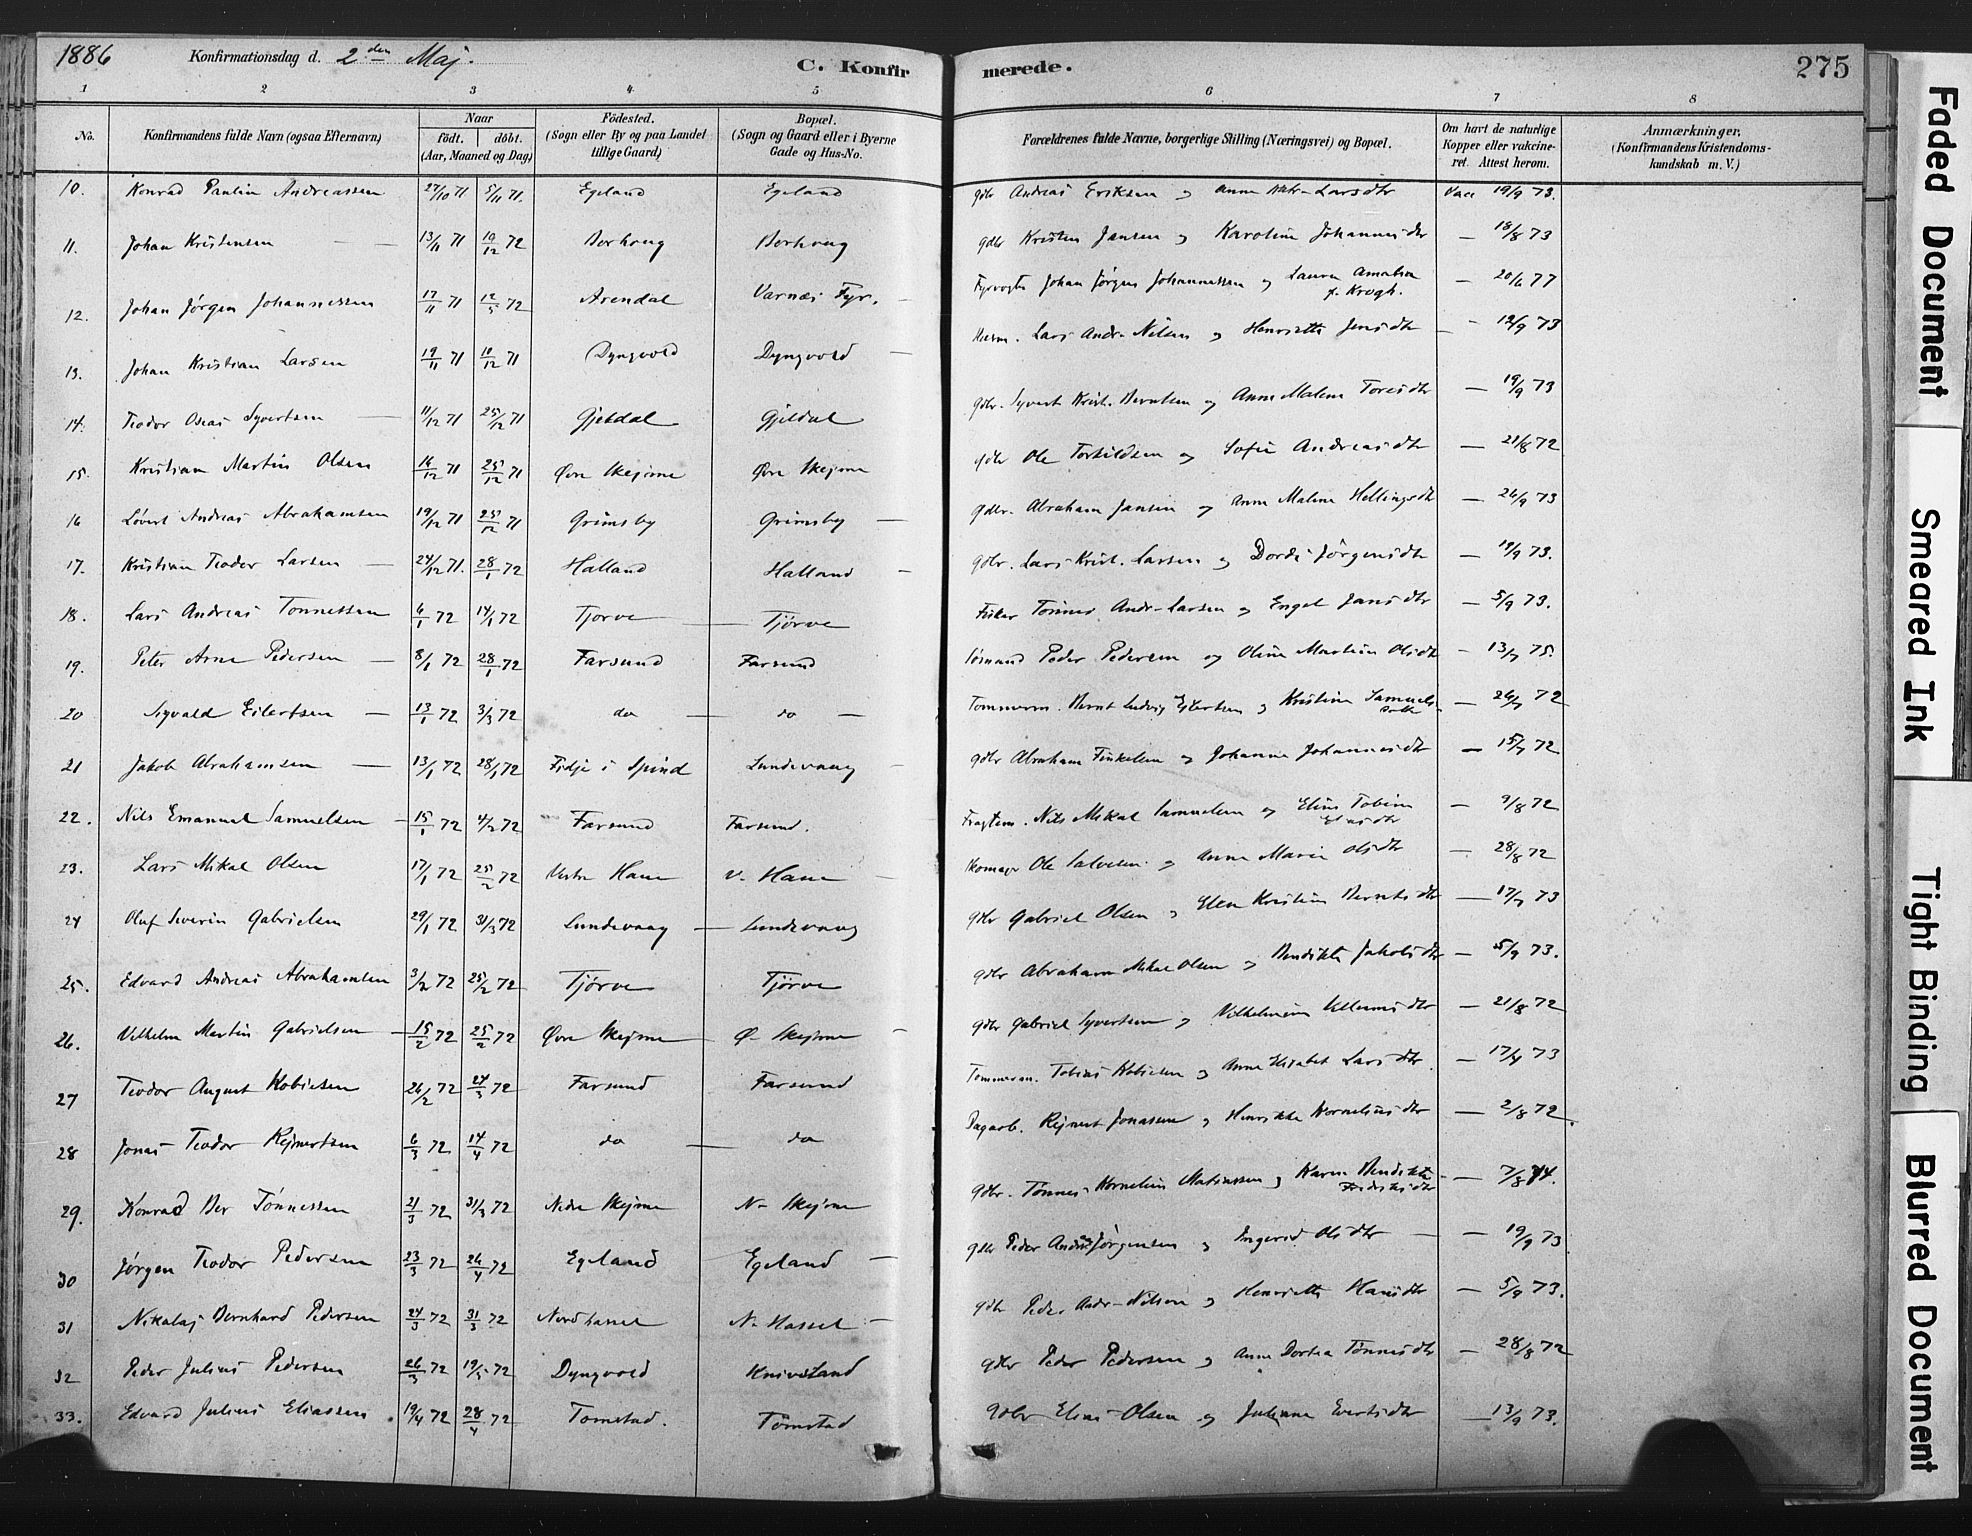 1886 Konfirmationsdag d. 2den Maj. C. Konfirmerede. 275
1 2 3 4 5 6 7 8
No. Konfirmandens fulde Navn (ogsaa Efternavn) Naar født. døbt. (Aar, Maaned og Dag) Fødested. (Sogn eller By og paa Landet tillige Gaard) Bopæl. (Sogn og Gaard eller i Byerne Gade og Hus-No. Forældrenes fulde Navne, borgerlige Stilling (Næringsvei) og Bopæl. Om havt de naturlige Kopper eller vakcineret. Attest herom. Anmærkninger, (Konfirmandens Kristendomskundskab m. V.)
10. Konrad Paulin Andreassen 27/10 71 5/11 71. Egeland Egeland gdbr Andreas Eriksen og Anne Larsdtr Vacc 19/9 73.
11. Johan Kristensen 13/11 71 19/12 72 Borhaug Borhaug gdbr Kristen Jansen og Karoline Johannesdtr — 18/8 73
12. Johan Jørgen Johannessen 17/11 71 12/5 72 Arendal Varnæs Fyr. Fyrvogter Johan Jørgen Johannessen og Laura Amalia f. Krogh. — 20/6 77
13. Johan Kristian Larsen 19/11 71 10/12 71 Dyngvold Dyngvold — Husm. Lars Andr. Nilsen og Henriette Jensdtr — 12/9 73
14. Teodor Oseas Syvertsen — 11/12 71 25/12 71 Gjeldal Gjeldal gdbr. Syvert Krist. Berntsen og Anne Malene Toresdtr — 19/9 73
15. Kristian Martin Olsen 14/12 71 25/12 71 Øvre Skejsne Øvre Skejsne gdbr Ole Torkildsen og Sofie Andreasdtr — 21/8 72
16 Løvert Andreas Abrahamsen 19/12 71 25/12 71 Grimsby Grimsby — gdbr. Abraham Jansen og Anne Malene Hellingsdtr — 26/9 73
17. Kristian Teodor Larsen — 24/12 71. 28/1 72 Halland Halland gdbr. Lars Krist. Larsen og Dorte Jørgensdtr — 19/9 73.
18. Lars Andreas Tønnessen 6/1 72 14/1 72 Tjørve — Tjørve Fisker Tønnes Andr. Larsen og Engel Jansdtr — 5/9 73.
19. Peter Arne Pedersen — 8/1 72 28/1 72 Farsund Farsund Sømand Peder Pedersen og Oline Martine Olsdtr — 13/7 75.
20 Sigvald Eilertsen — 13/1 72 3/3 72 do — do — Tømmerm. Bernt Ludvig Eilertsen og Kristine Samuelsdatter — 26/7 72
21 Jakob Abrahamsen — 13/1 72 28/1 72 Fidje i Spind Lundevaag gdbr Abraham Finkelsen og Johanne Johannesdtr — 15/7 72
22. Nils Emanuel Samuelsen — 15/1 72 4/2 72 Farsund Farsund. Nils Mikal Samuelsen og Eline Tobine — 9/8 72
23. Lars Mikal Olsen 17/1 72 25/2 72 Vestre Hauge V. Hauge Skomager Ole Salvesen og Anne Marie Olsdtr — 28/8 72
24 Oluf Severin Gabrielsen 29/1 72 31/3 72 Lundevaag — Lundevaag gdbr Gabriel Olsen og Elen Kristine Berntsdtr — 17/7 73
25. Edvard Andreas Abrahamsen 3/2 72 25/2 72 Tjørve Tjørve gdbr Abraham Mikal Olsen og Bendikte Jakobsdtr — 5/9 73.
26. Vilhelm Martin Gabrielsen — 15/2 72 25/2 72 Øvre Skejsne Ø. Skejsne gdbr Gabriel Syvertsen og Vilhelmine — 21/8 72
27 Teodor August Tobiesen 26/2 72 24/3 72 Farsund Farsund Tømmerm. Tobias Tobiesen og Anne Elisabet Larsdtr. — 17/4 73
28 Jonas Teodor Rejnertsen 6/3 72 14/4 72 do — do Dagarb. Rejnert Jonassen og Henrikke Korneliusdtr — 2/8 72.
29. Konrad Ber Tønnessen 21/3 72 31/3 72 Nedre Skejsne N. Skejsne gdbr. Tønnes Kornelius Matiassen og Karen Bendikte Fredriksdtr — 7/8 74.
30 Jørgen Teodor Pedersen 23/3 72 26/4 72 Egeland Egeland — gdbr Peder Andr. Jørgensen og Ingerid Olsdtr — 19/9 73
31 Nikolaj Bernhard Pedersen 24/3 72 31/3 72 Nordhassel N. Hassel — gdbr Peder Andr. Nilsen og Henriette Hansdtr — 5/9 73.
32 Peder Julius Pedersen 26/3 72 19/5 72 Dyngvold Knivsland gdbr Peder Pedersen og Anne Dortea Tønnesdtr — 28/8 72
33. Edvard Julius Eliassen 19/4 72 28/4 72 Tomstad. Tomstad gdbr Elias Olsen og Juliane Evertsdtr — 13/9 73.
Faded Document
Smeared Ink
Tight Binding
Blurred Document